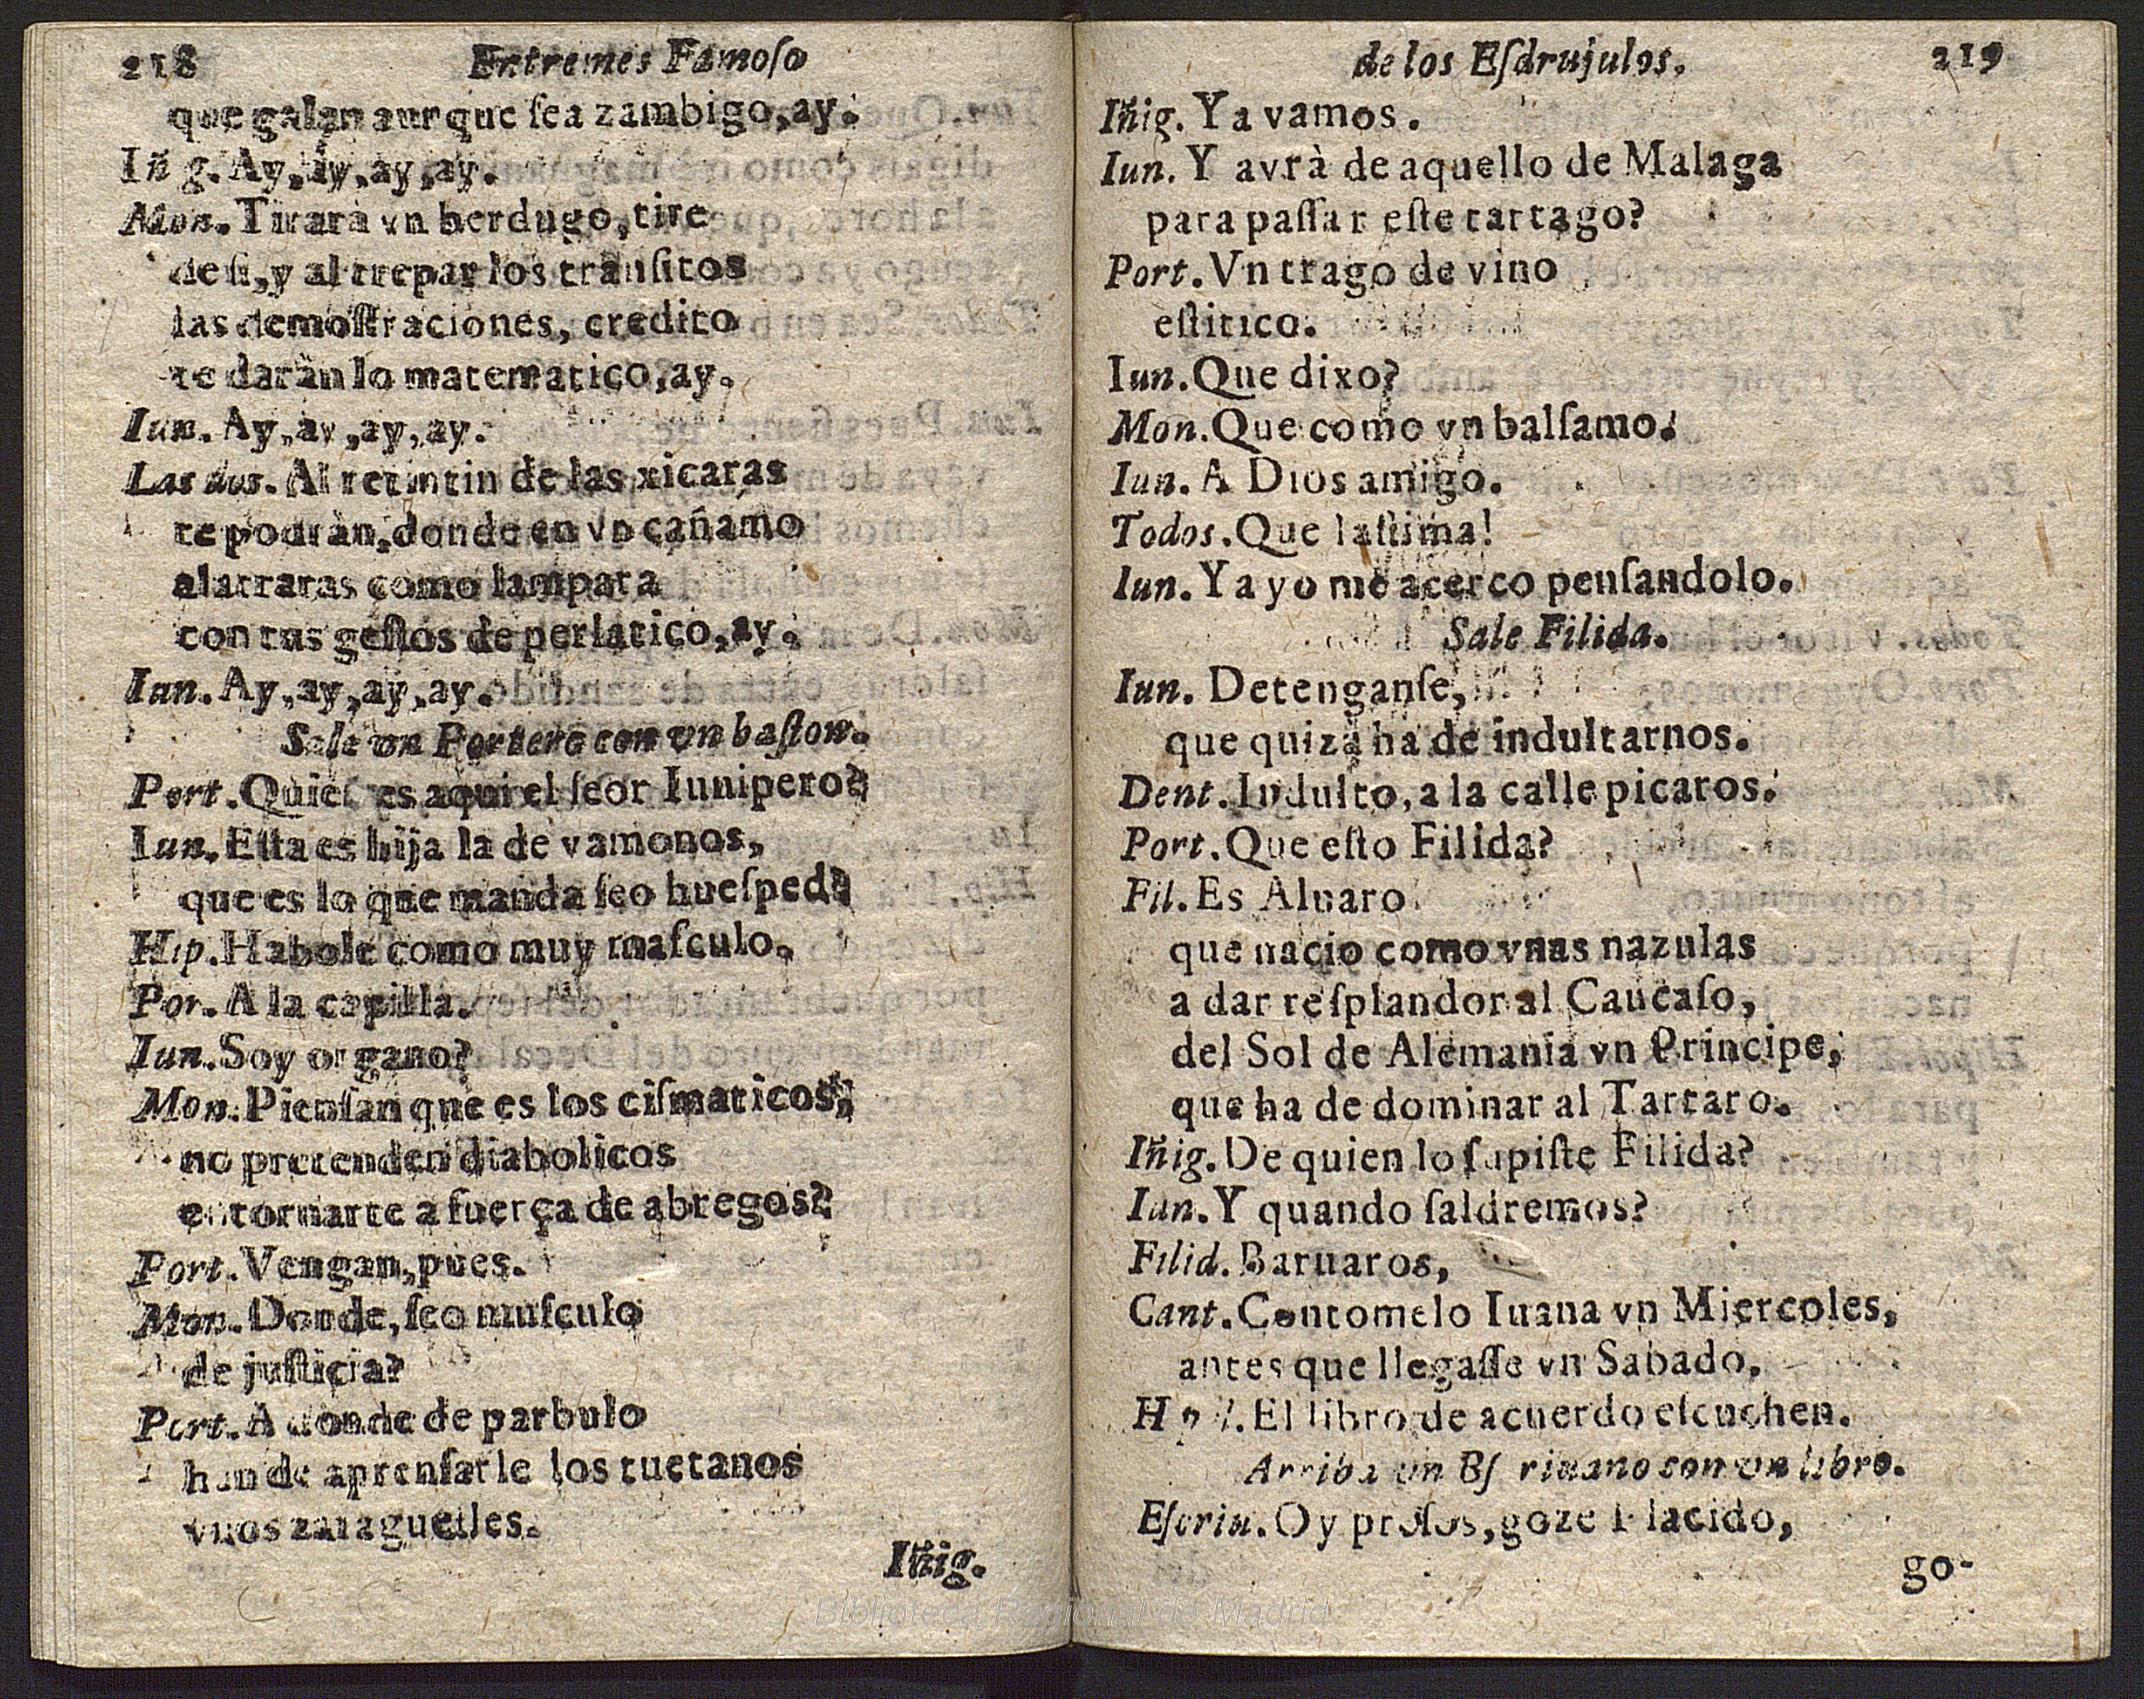 218 Entremes Famoſo
que galan aunque ſea zambigo, ay.
Iñ g. Ay, ay, ay, ay.
Mon. Tirarà vn berdugo, tire
de ſi, y al trepar los tranſitos
las demoſtraciones, credito
te daràn lo matematico, ay.
Iun. Ay, ay, ay, ay.
Las dos. Al retintin de las xicaras
te podràn, donde en vn cañamo
alatraras como lampara
con tus geſtos de perlatico, ay.
Iun. Ay, ay, ay, ay.
Sale vn Portero con vn baſton.
Port. Quien es aqui el ſeor Iunipero?
Iun. Eſta es hija la de vamonos,
que es lo que manda ſeo hueſped?
Hip. Habole como muy maſculo.
Por. A la capilla.
Iun. Soy organo?
Mon. Pienſan que es los ciſmaticos,
no pretenden diabolicos
entornarte a fuerça de abregos?
Port. Vengan, pues.
Mon. Donde, ſeo muſculo
de juſticia?
Port. A donde de parbulo
han de aprenſarle los tuetanos
vnos zaraguelles.
Iñig.
de los Eſdrujulos. 219
Iñig. Ya vamos.
Iun. Y avrà de aquello de Malaga
para paſſar eſte tartago?
Port. Vn trago de vino
eſtitico.
Iun. Que dixo?
Mon. Que como vn balſamo.
Iun. A Dios amigo.
Todos. Que laſtima!
Iun. Ya yo me acerco penſandolo.
Sale Filida.
Iun. Detenganſe,
que quizà ha de indultarnos.
Dent. Indulto, a la calle picaros.
Port. Que eſto Filida?
Fil. Es Aluaro
que nacio como vnas nazulas
a dar reſplandor al Caucaſo,
del Sol de Alemania vn Principe,
que ha de dominar al Tartaro.
Iñig. De quien lo ſupiſte Filida?
Iun. Y quando ſaldremos?
Filid. Baruaros,
Cant. Contomelo Iuana vn Miercoles,
antes que llegaſſe vn Sabado.
H p l. El libro de acuerdo eſcuchen.
Arriba vn Eſ riuano con vn libro.
Eſcriu. Oy preſos, goze Placido,
go-
Biblioteca Regional de Madrid